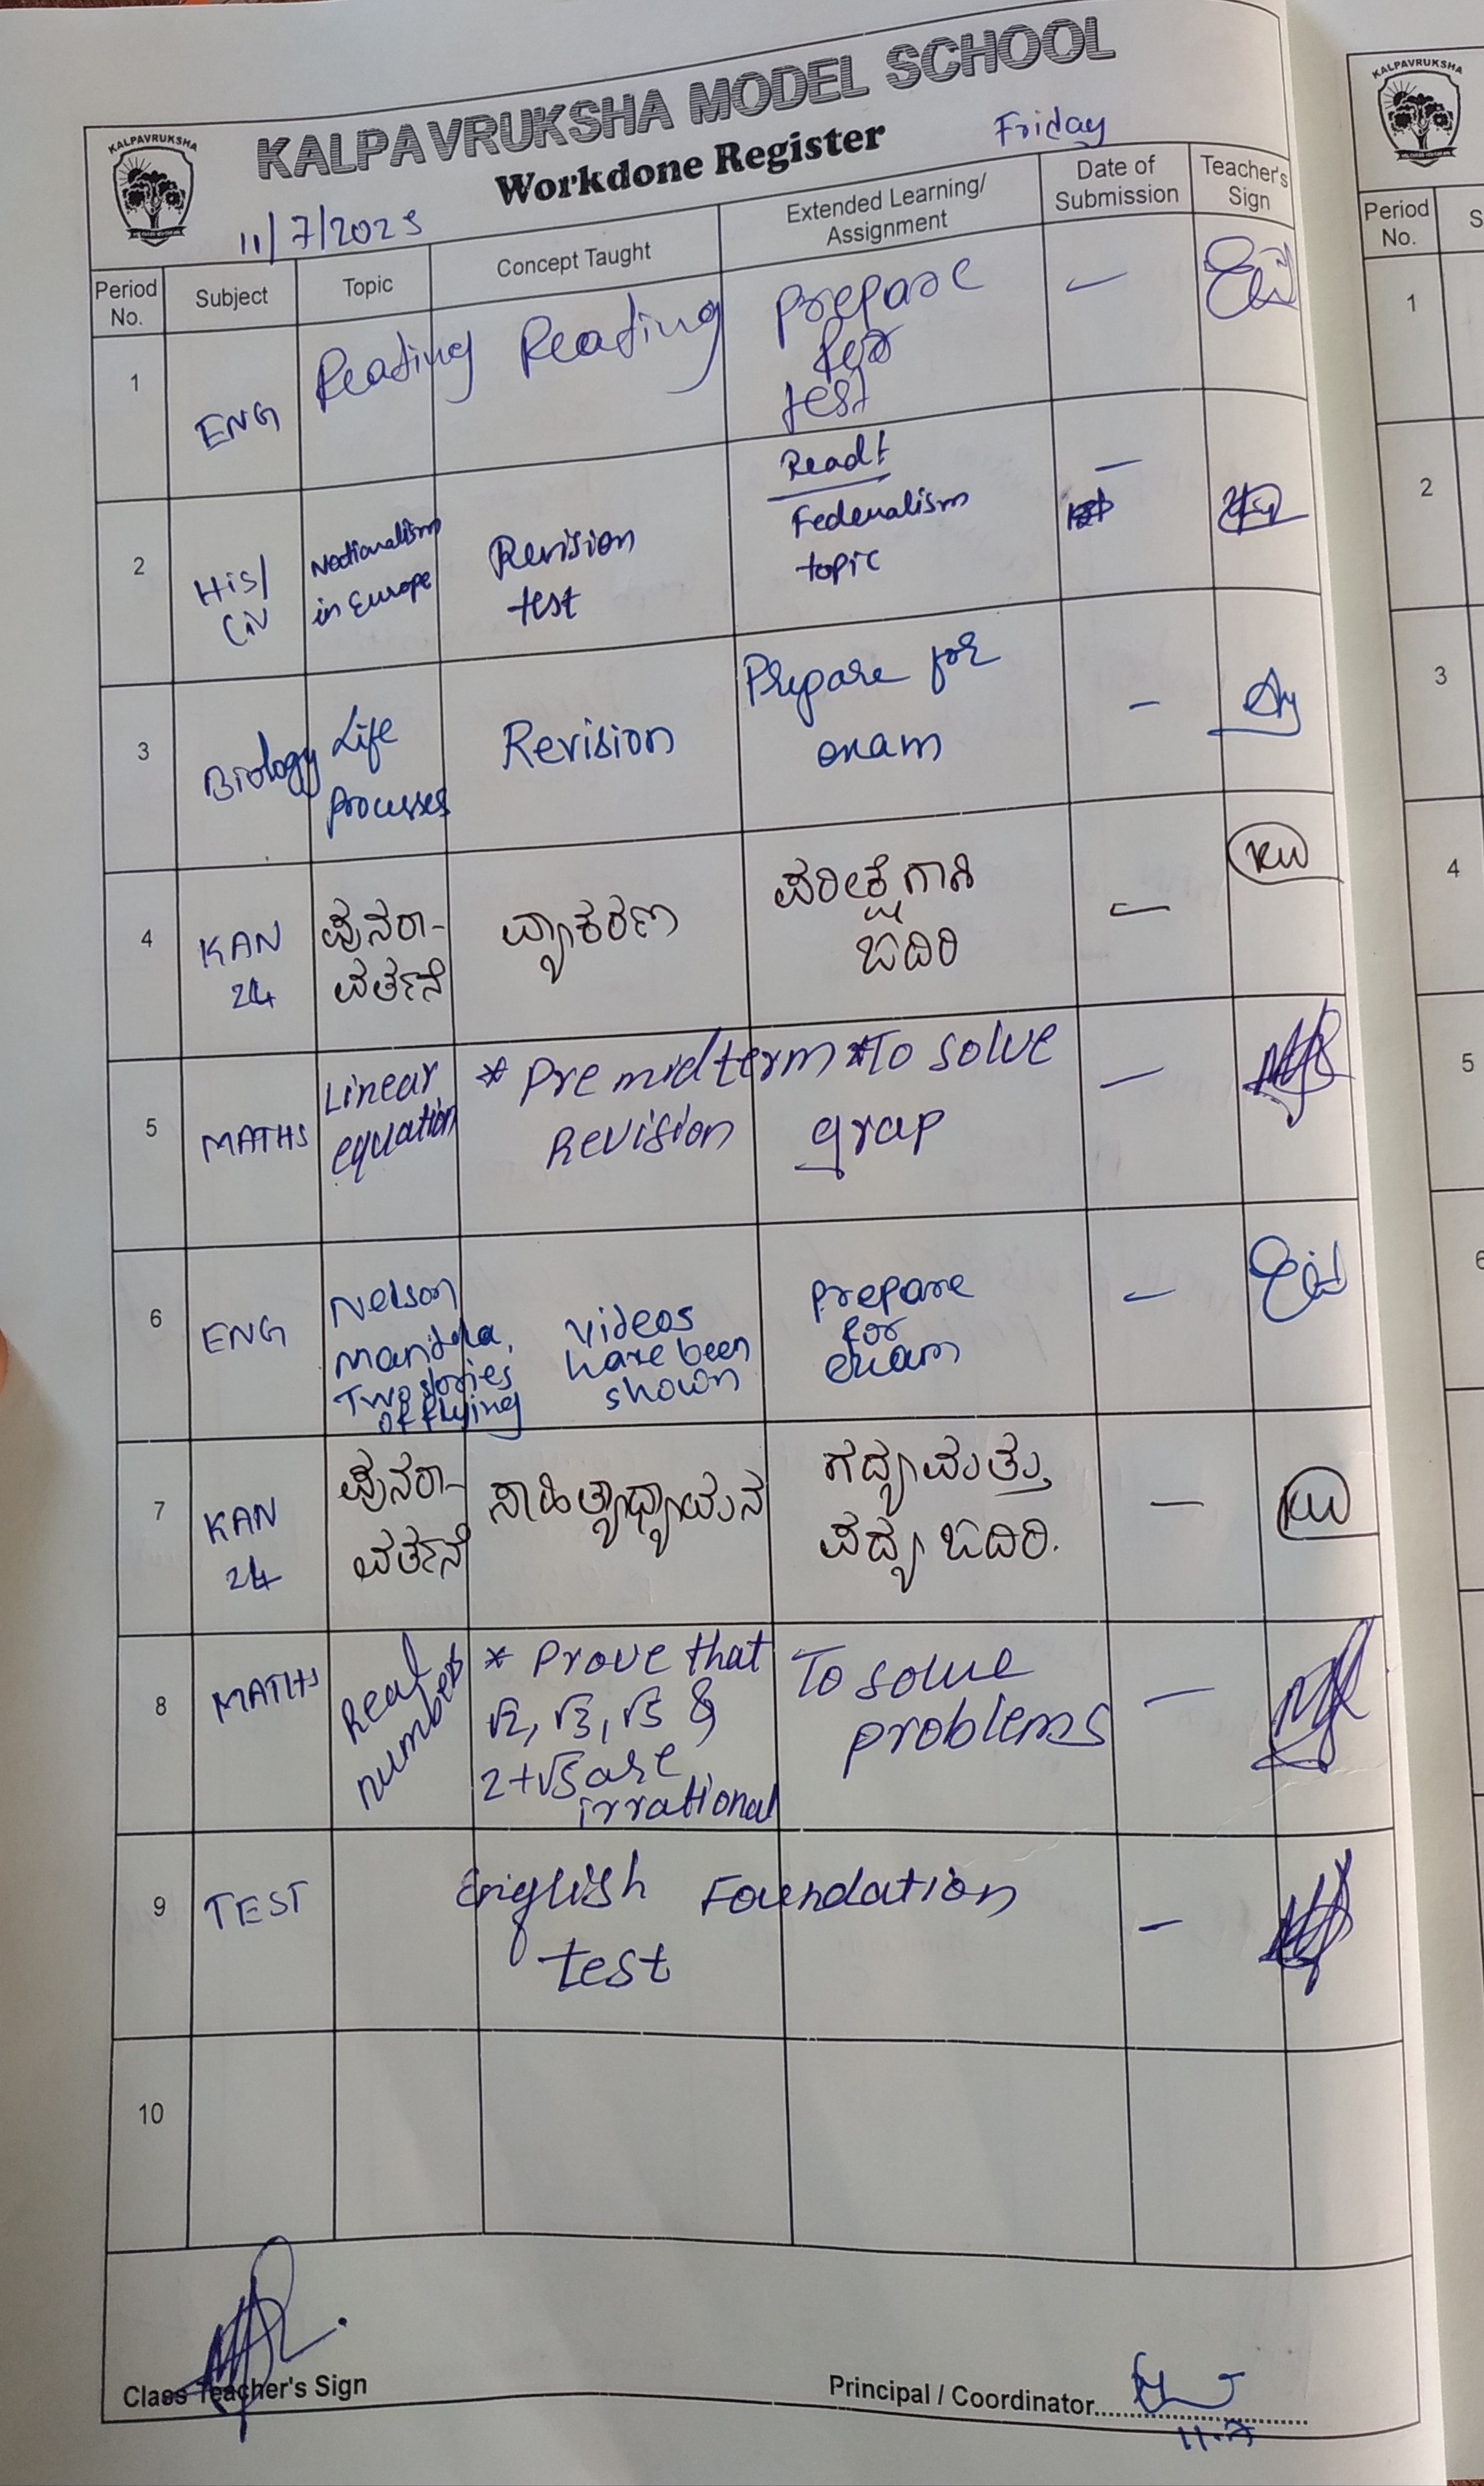 KALPAVRUKSHA MODEL SCHOOL
KALPAVRUKSHA
Workdone Register
Friday
11/7/2025
Period No.
Subject
Topic
Concept Taught
Extended Learning/ Assignment
Date of Submission
Teacher's Sign
1
ENG
Reading
Reading
Prepare
for
test
—
2
His/
Civ
Nationalism
in Europe
Revision
test
Read!
Federalism
topic
—
3
Biology
Life
Processes
Revision
Prepare for
exam
-
4
KAN
24
ಪುನರಾ-
ವರ್ತನೆ
ವ್ಯಾಕರಣ
ಪರೀಕ್ಷೆಗಾಗಿ
ಓದಿರಿ
—
KW
5
MATHS
Linear
equation
* Pre midterm
Revision
*To solve
grap
—
6
ENG
Nelson
Mandela,
Two stories
of flying
videos
have been
shown
prepare
for
exam
—
7
KAN
24
ಪುನರಾ-
ವರ್ತನೆ
ಸಾಹಿತ್ಯಾಧ್ಯಾಯನ
ಗದ್ಯ ಮತ್ತು
ಪದ್ಯ ಓದಿರಿ.
—
KW
8
MATHS
Real
numbers
* Prove that
√2, √3, √5 &
2+√5 are
irrational
To solve
problems
—
9
TEST
English Foundation
test
—
10
Class Teacher's Sign
Principal / Coordinator
11.7
KALPAVRUKSHA
Period
No.
S
1
2
3
4
5
6